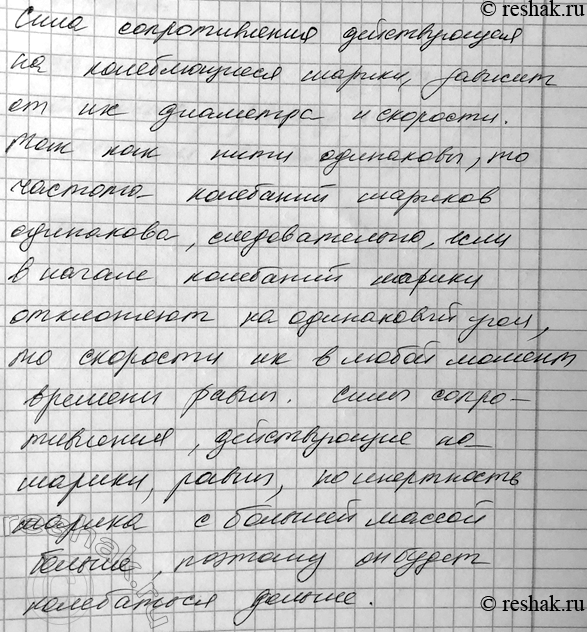 © reshak.ru
Сила сопротивления действующая
на колеблющиеся шарики, зависит
от их диаметра и скорости.
Так как нити одинаковы, то
частота колебаний шариков
одинакова, следовательно, если
в начале колебаний шарики
отклоняют на одинаковый угол,
то скорости их в любой момент
времени равны. Силы сопро-
тивления, действующие на
шарики, равны, но инертность
шарика с большей массой
больше, поэтому он будет
колебаться дольше.
reshak.ru
© reshak.ru